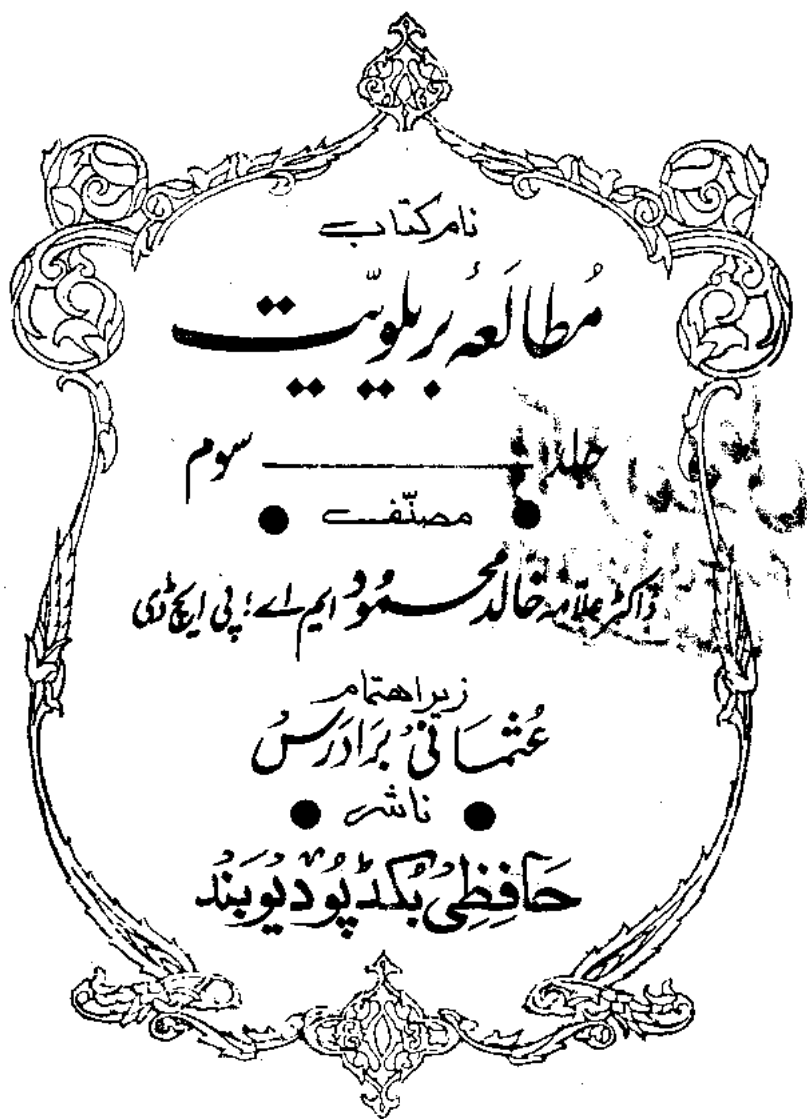 نام کتاب
مُطالَعۂ بریلویّت
جلد ـــــــ سوم
● مصنّف ●
ڈاکٹر علّامہ خالد محمود ایم اے؛ پی ایچ ڈی
زیر اهتمام
عُثمانی بَرادَرس
● ناشر ●
حَافِظِی بُکڈپُو دیُوبَند